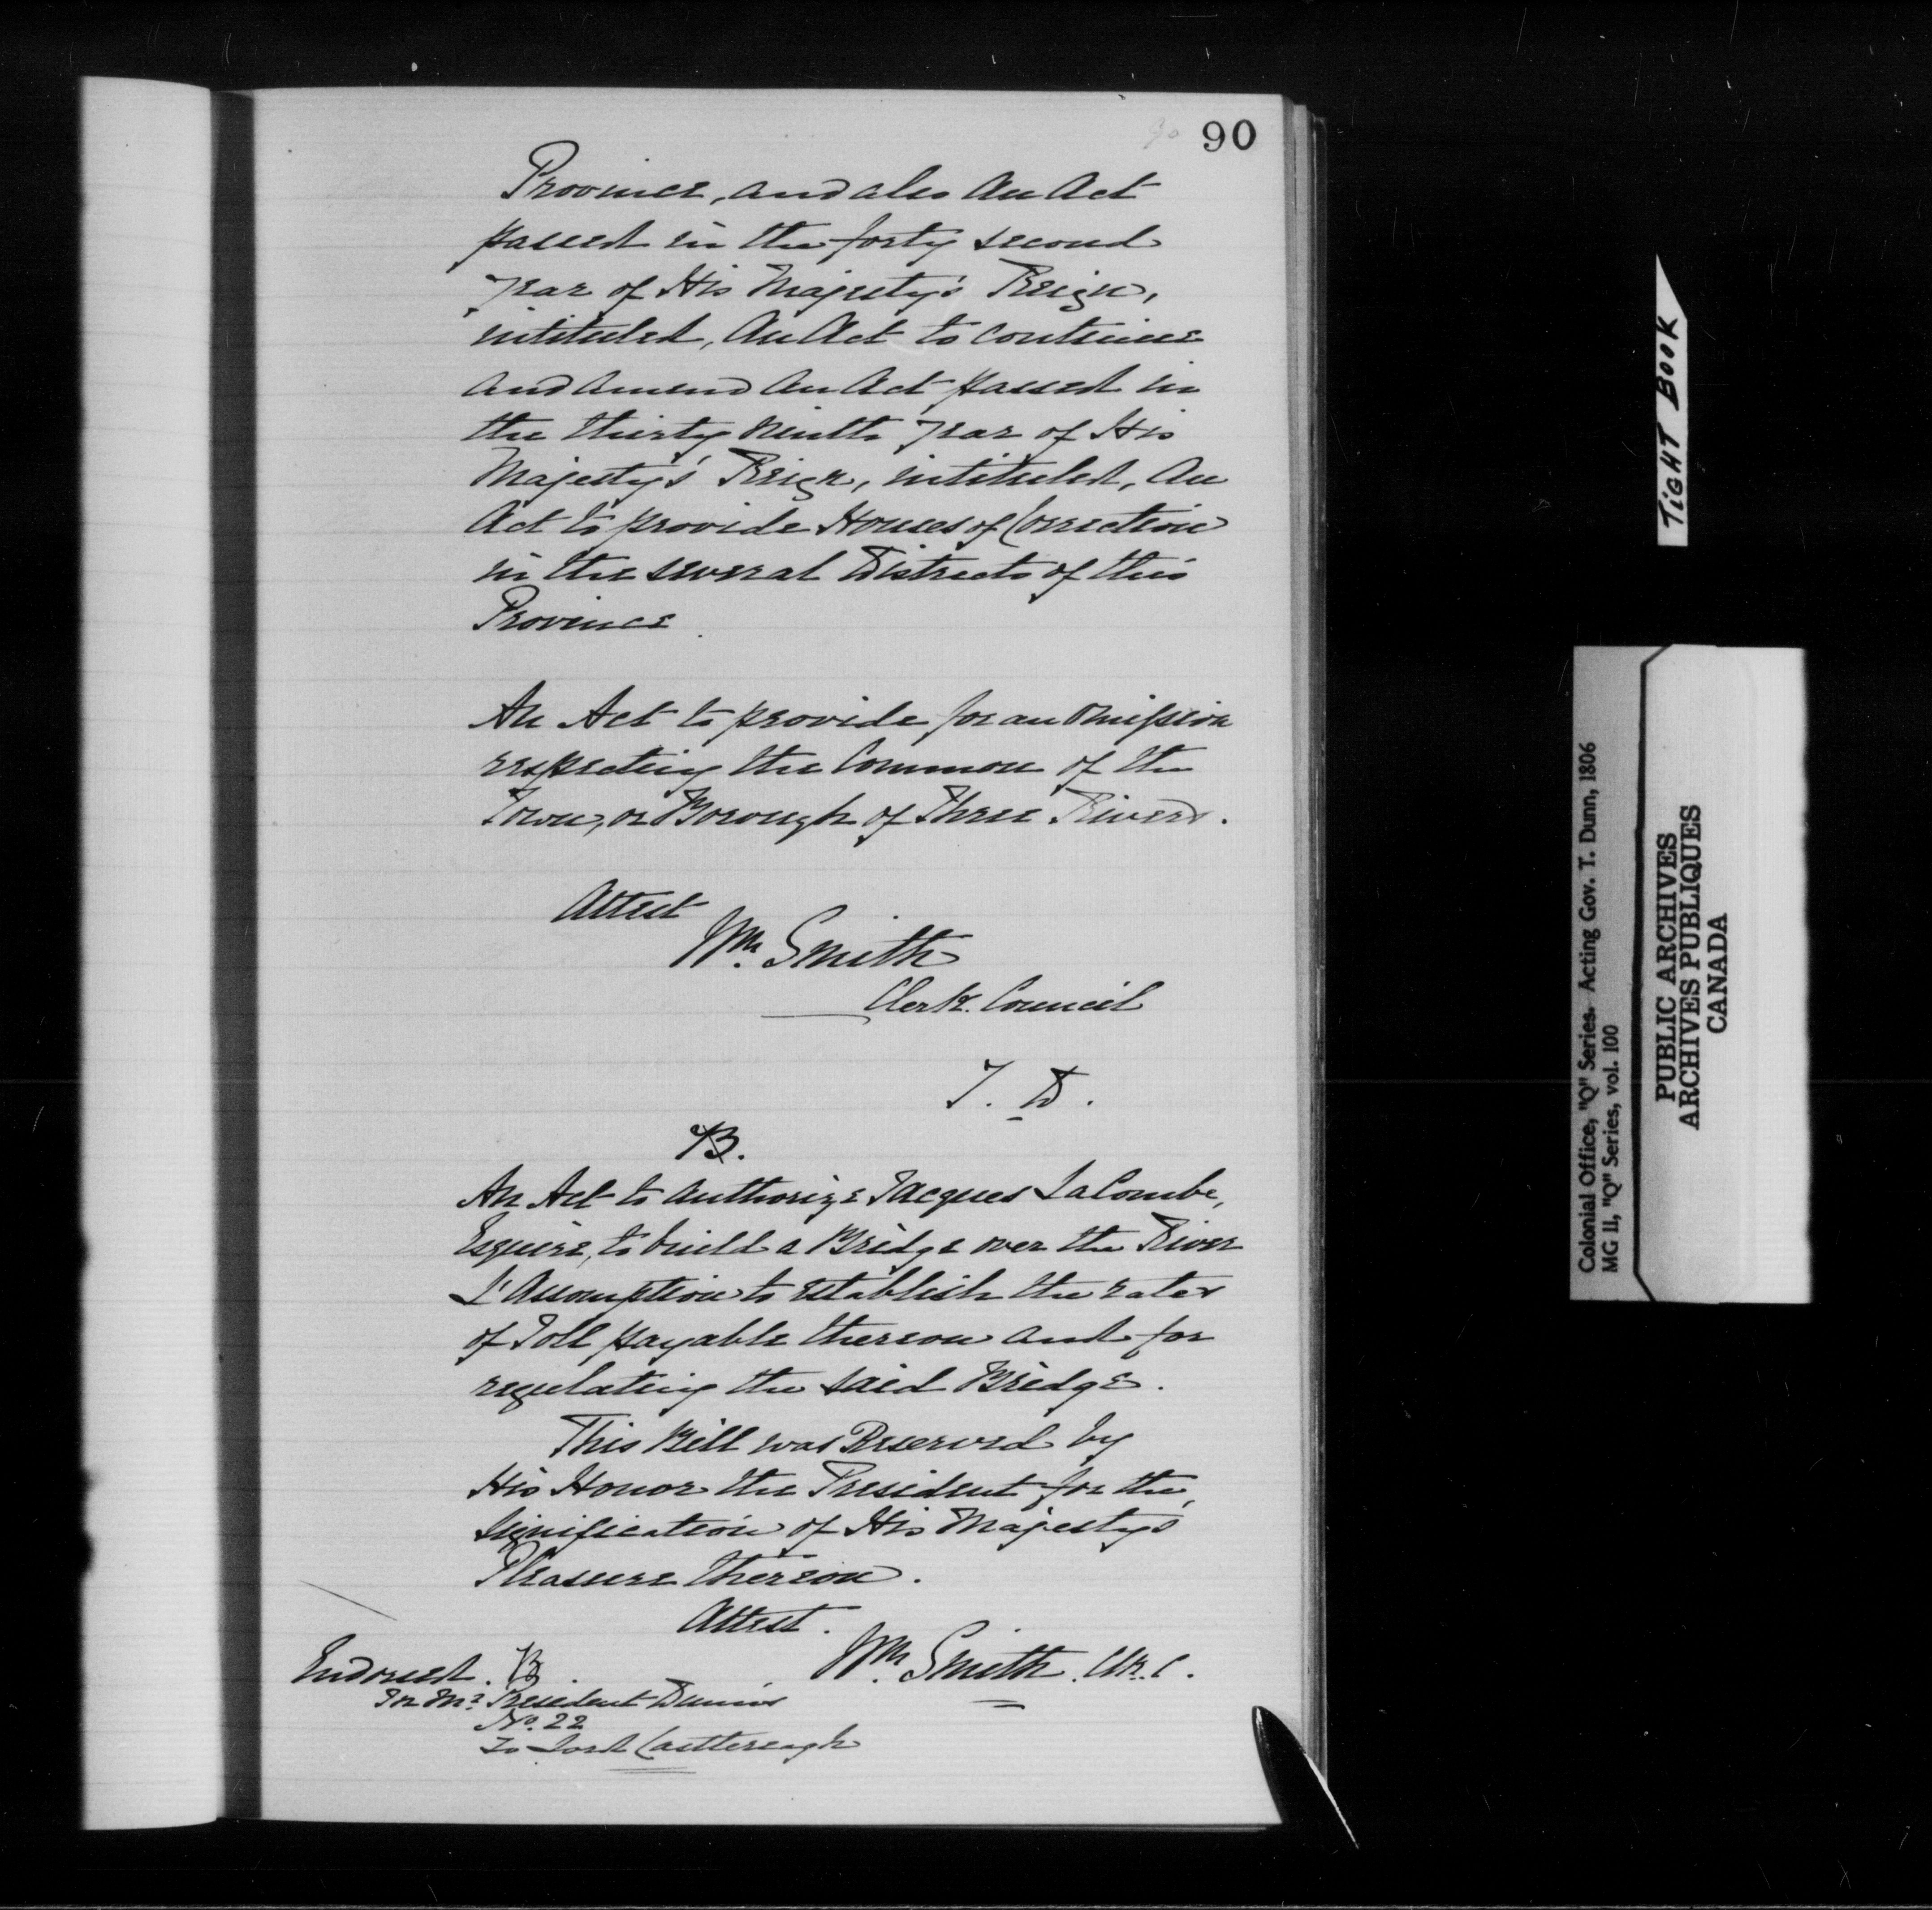 90 90
Province, and also An Act
passed in the forty second
year of His Majesty's Reign,
intituled, An Act to continue
and amend an Act passed in
the thirty ninth year of His
Majesty's Reign, intituled, An
Act to provide Houses of Correction
in the several Districts of this
Province.
An Act to provide for an Omission
respecting the Common of the
Town, or Borough of Three Rivers.
Attest
Wm. Smith
Clerk. Council
T. D.
B.
An Act to authorize Jacques LaCombe,
Esquire, to build a Bridge over the River
L'Assomption to establish the rates
of Toll payable thereon and for
regulating the said Bridge.
This Bill was Reserved by
His Honor the President for the
signification of His Majesty's
Pleasure thereon.
Attest.
Wm Smith. Clk. C.
Endorsed. B.
In Mr. President Dunn's
No. 22
to Lord Castlereagh
TIGHT BOOK
Colonial Office, "Q" Series. Acting Gov. T. Dunn, 1806
MG 11, "Q" Series, vol. 100
PUBLIC ARCHIVES
ARCHIVES PUBLIQUES
CANADA